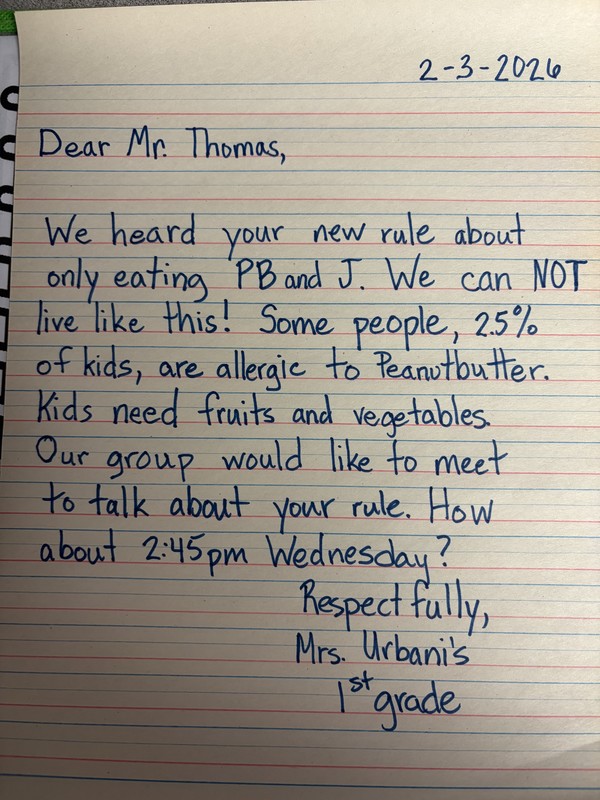 2-3-2026
Dear Mr. Thomas,
We heard your new rule about
only eating PB and J. We can NOT
live like this! Some people, 2.5%
of kids, are allergic to Peanutbutter.
Kids need fruits and vegetables.
Our group would like to meet
to talk about your rule. How
about 2:45pm Wednesday?
Respectfully,
Mrs. Urbani's
1st grade